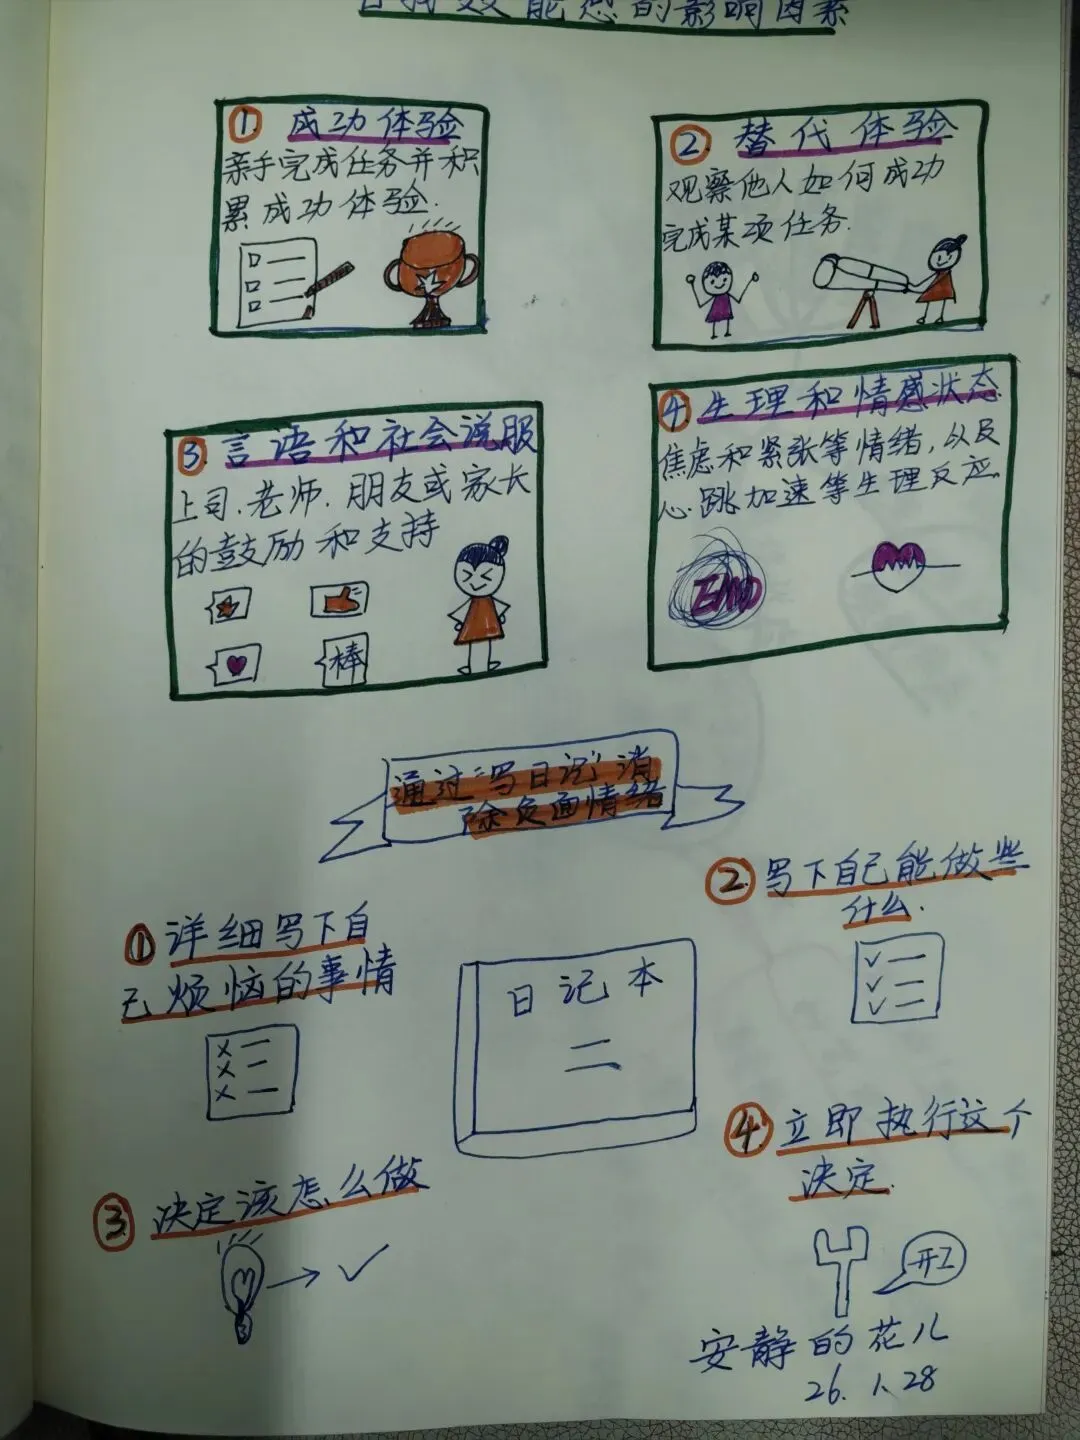 自我效能感的影响因素
①. 成功体验
亲手完成任务并积
累成功体验.
②. 替代体验
观察他人如何成功
完成某项任务.
③. 言语和社会说服
上司、老师、朋友或家长
的鼓励和支持
棒
④ 生理和情感状态
焦虑和紧张等情绪,以及
心跳加速等生理反应.
EMO
通过“写日记”消
除负面情绪
① 详细写下自
己烦恼的事情
②. 写下自己能做些
什么.
日记本
二
③. 决定该怎么做
④. 立即执行这个
决定.
开工
安静的花儿
26.1.28